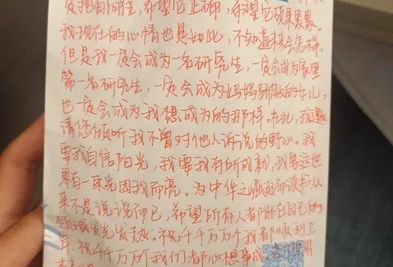 我现在的心情也是如此，不知道将会怎样。
但是我一定会成为一名研究生，一定会成为家里
第一名研究生，一定会成为妈妈骄傲的女儿，
也一定会成为我想成为的那样。在此，我
请您倾听我不曾对他人诉说的野心。我
要我自信阳光，我要我有所成就，我要这世
界有一束光因我而亮。为中华之崛起而读书从
来不是说说而已，希望所有人都能在自己的
发光发热。祝千千万万个我都顺利上
岸，祝千万万个我们都心想事成